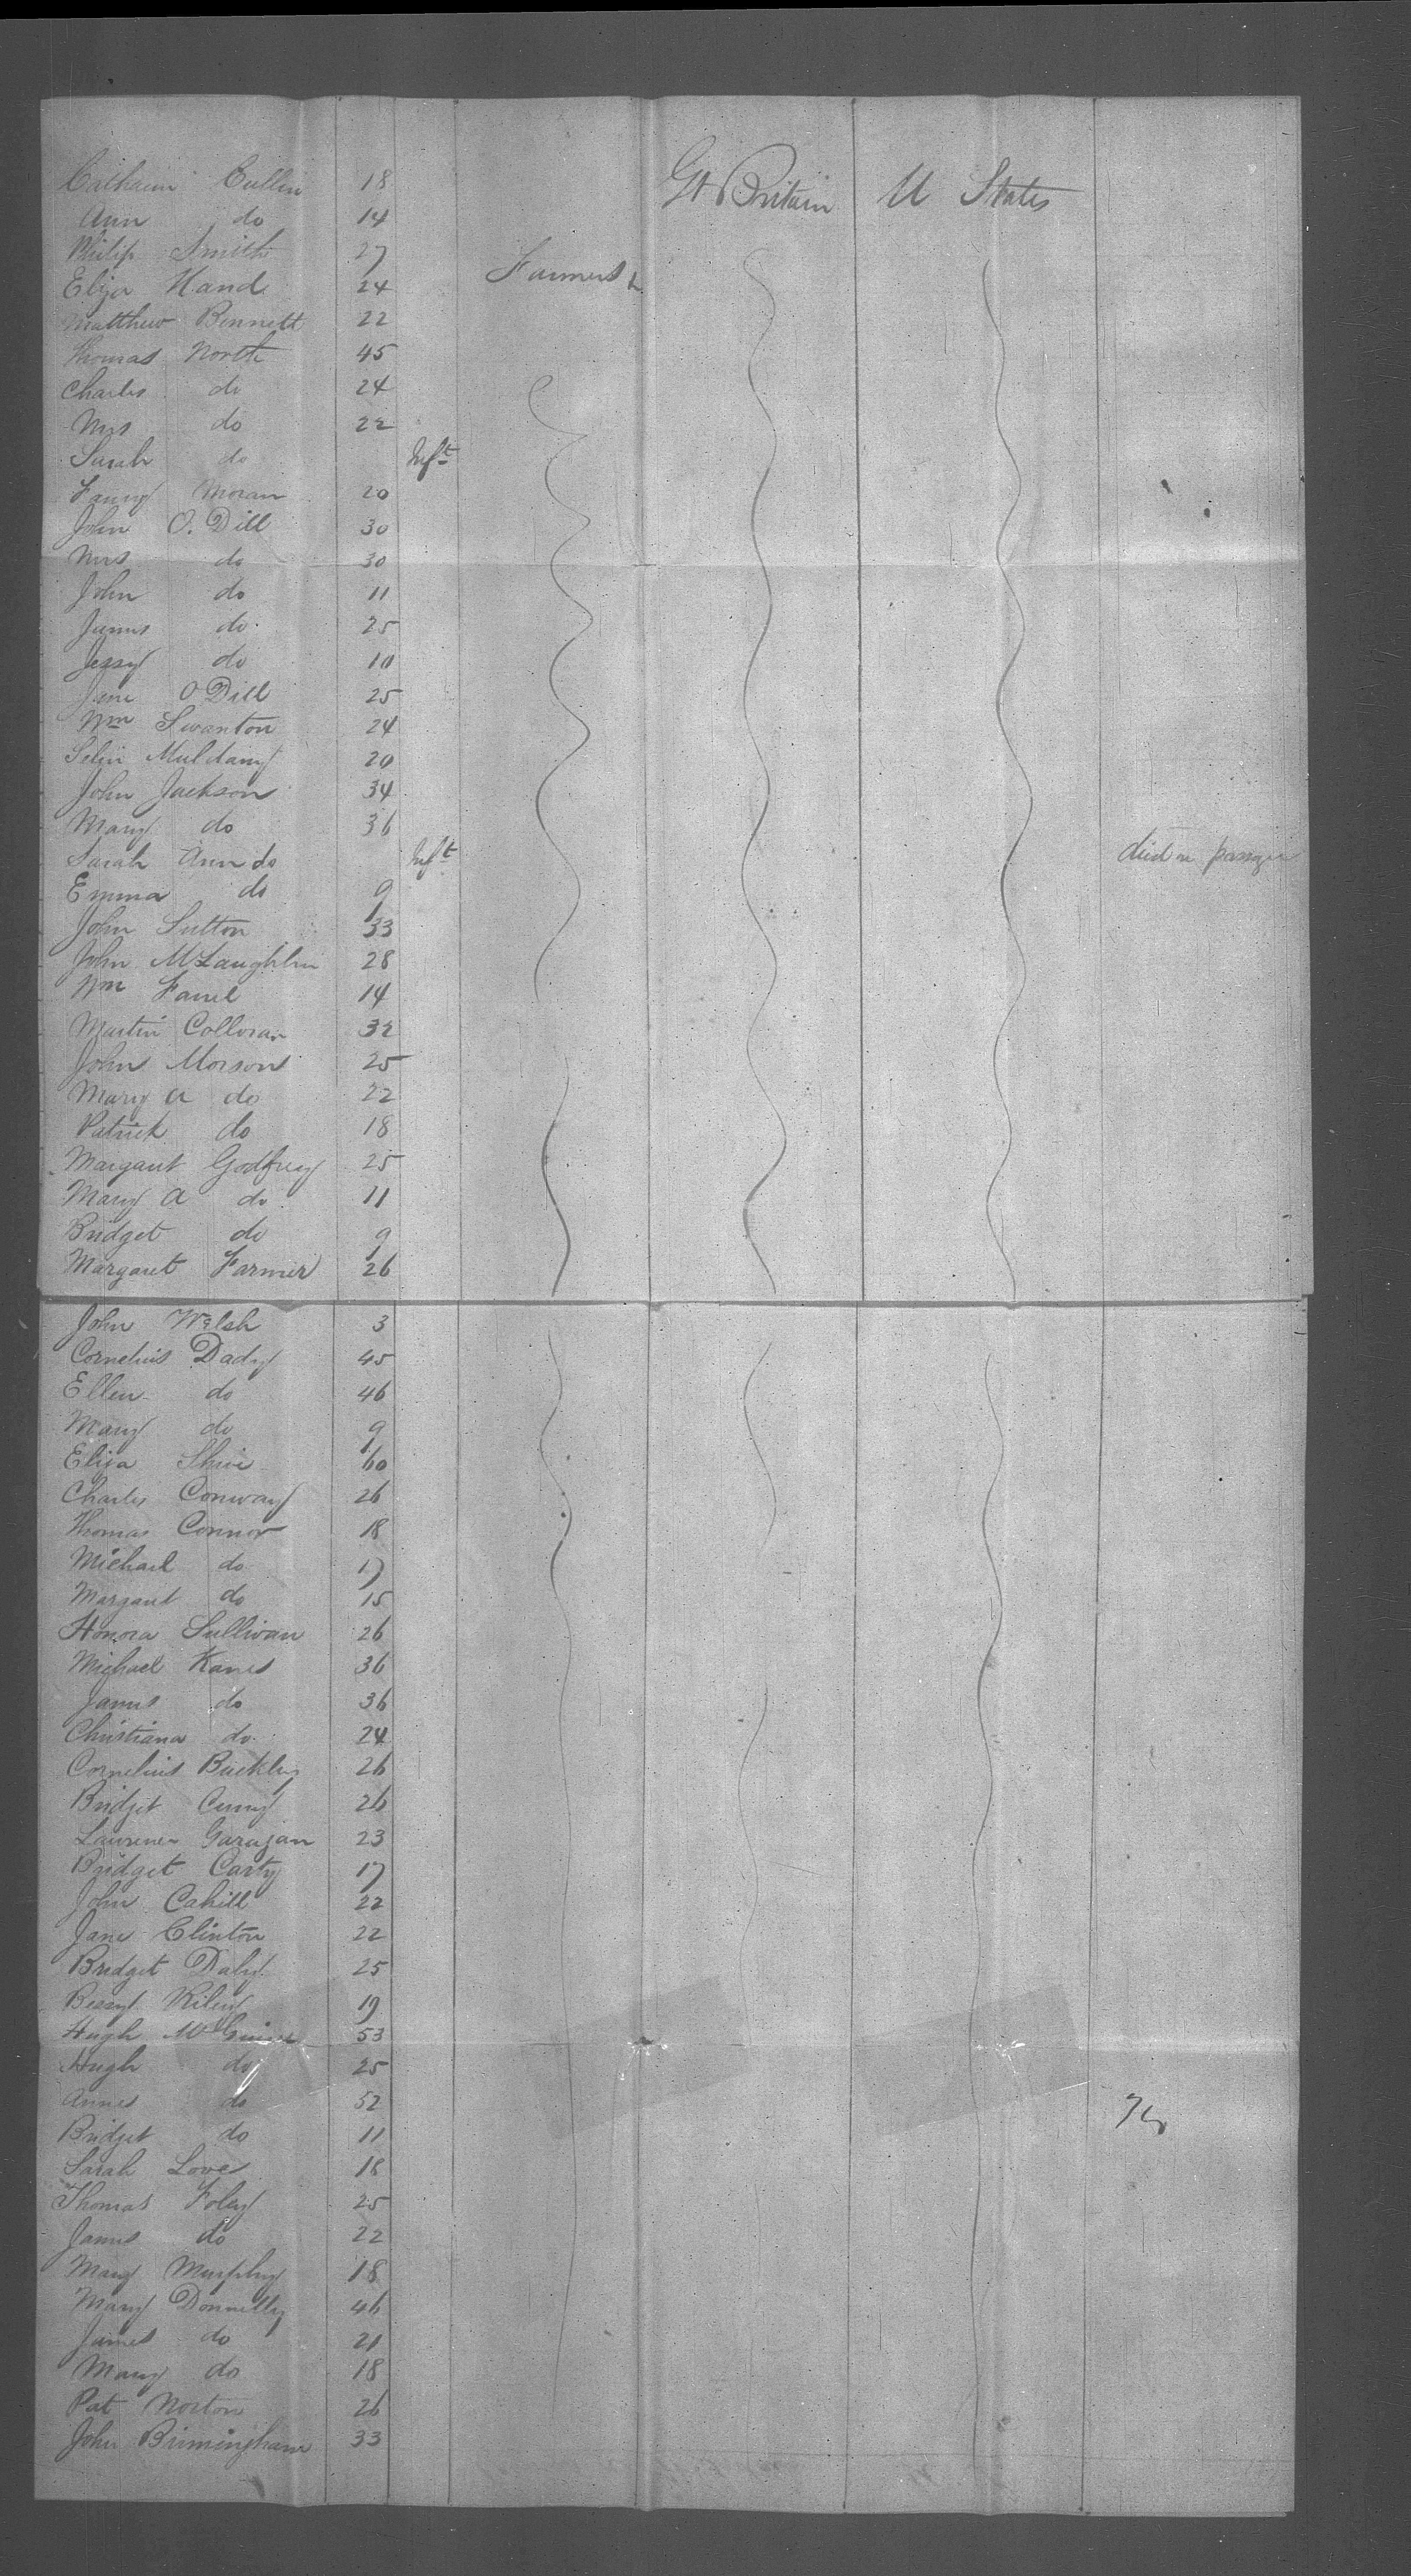 Catharin Cullin 18 Gt Britain U States
Ann do 14
Philip Smith 27
Eliza Hand 24 Farmers
Matthew Bennett 22
Thomas North 45
Charles do 24
Mrs do 22
Sarah do Inft
Fanny Moran 20
John O. Dill 30
Mrs do 30
John do 11
James do 25
Jessy do 10
Jane O Dill 25
Wm Swanton 24
Muldany 20
John Jackson 34
Mary do 36
Sarah Ann do Inft died on passage
Emma do 9
John Sutton 33
John McLaughlin 28
Wm Farrel 14
Martin Colloran 32
John Morson 25
Mary A do 22
Patrick do 18
Margaret Godfrey 25
Mary A do 11
Bridget do 9
Margaret Farmer 26
John Welsh 3
Cornelius Dady 45
Ellen do 46
Mary do 9
Eliza 60
Charles Conway 26
Thomas Connor 18
Michael do 17
Margaret do 15
Honora Sullivan 26
Michael Kanes 36
James do 36
Christiana do 24
Cornelius Buckley 26
Bridget 26
Laurence Garagan 23
Bridget Carty 17
John Cahill 22
Jane Clinton 22
Bridget Daly 25
Bessy Riley 19
Hugh McGuire 53
Hugh do 25
Annes do 52
Bridget do 11
Sarah Love 18
Thomas Foley 25
James do 22
Mary Murphy 18
Mary Donnelly 46
James do 21
Mary do 18
Pat Norton 26
John Birmingham 33